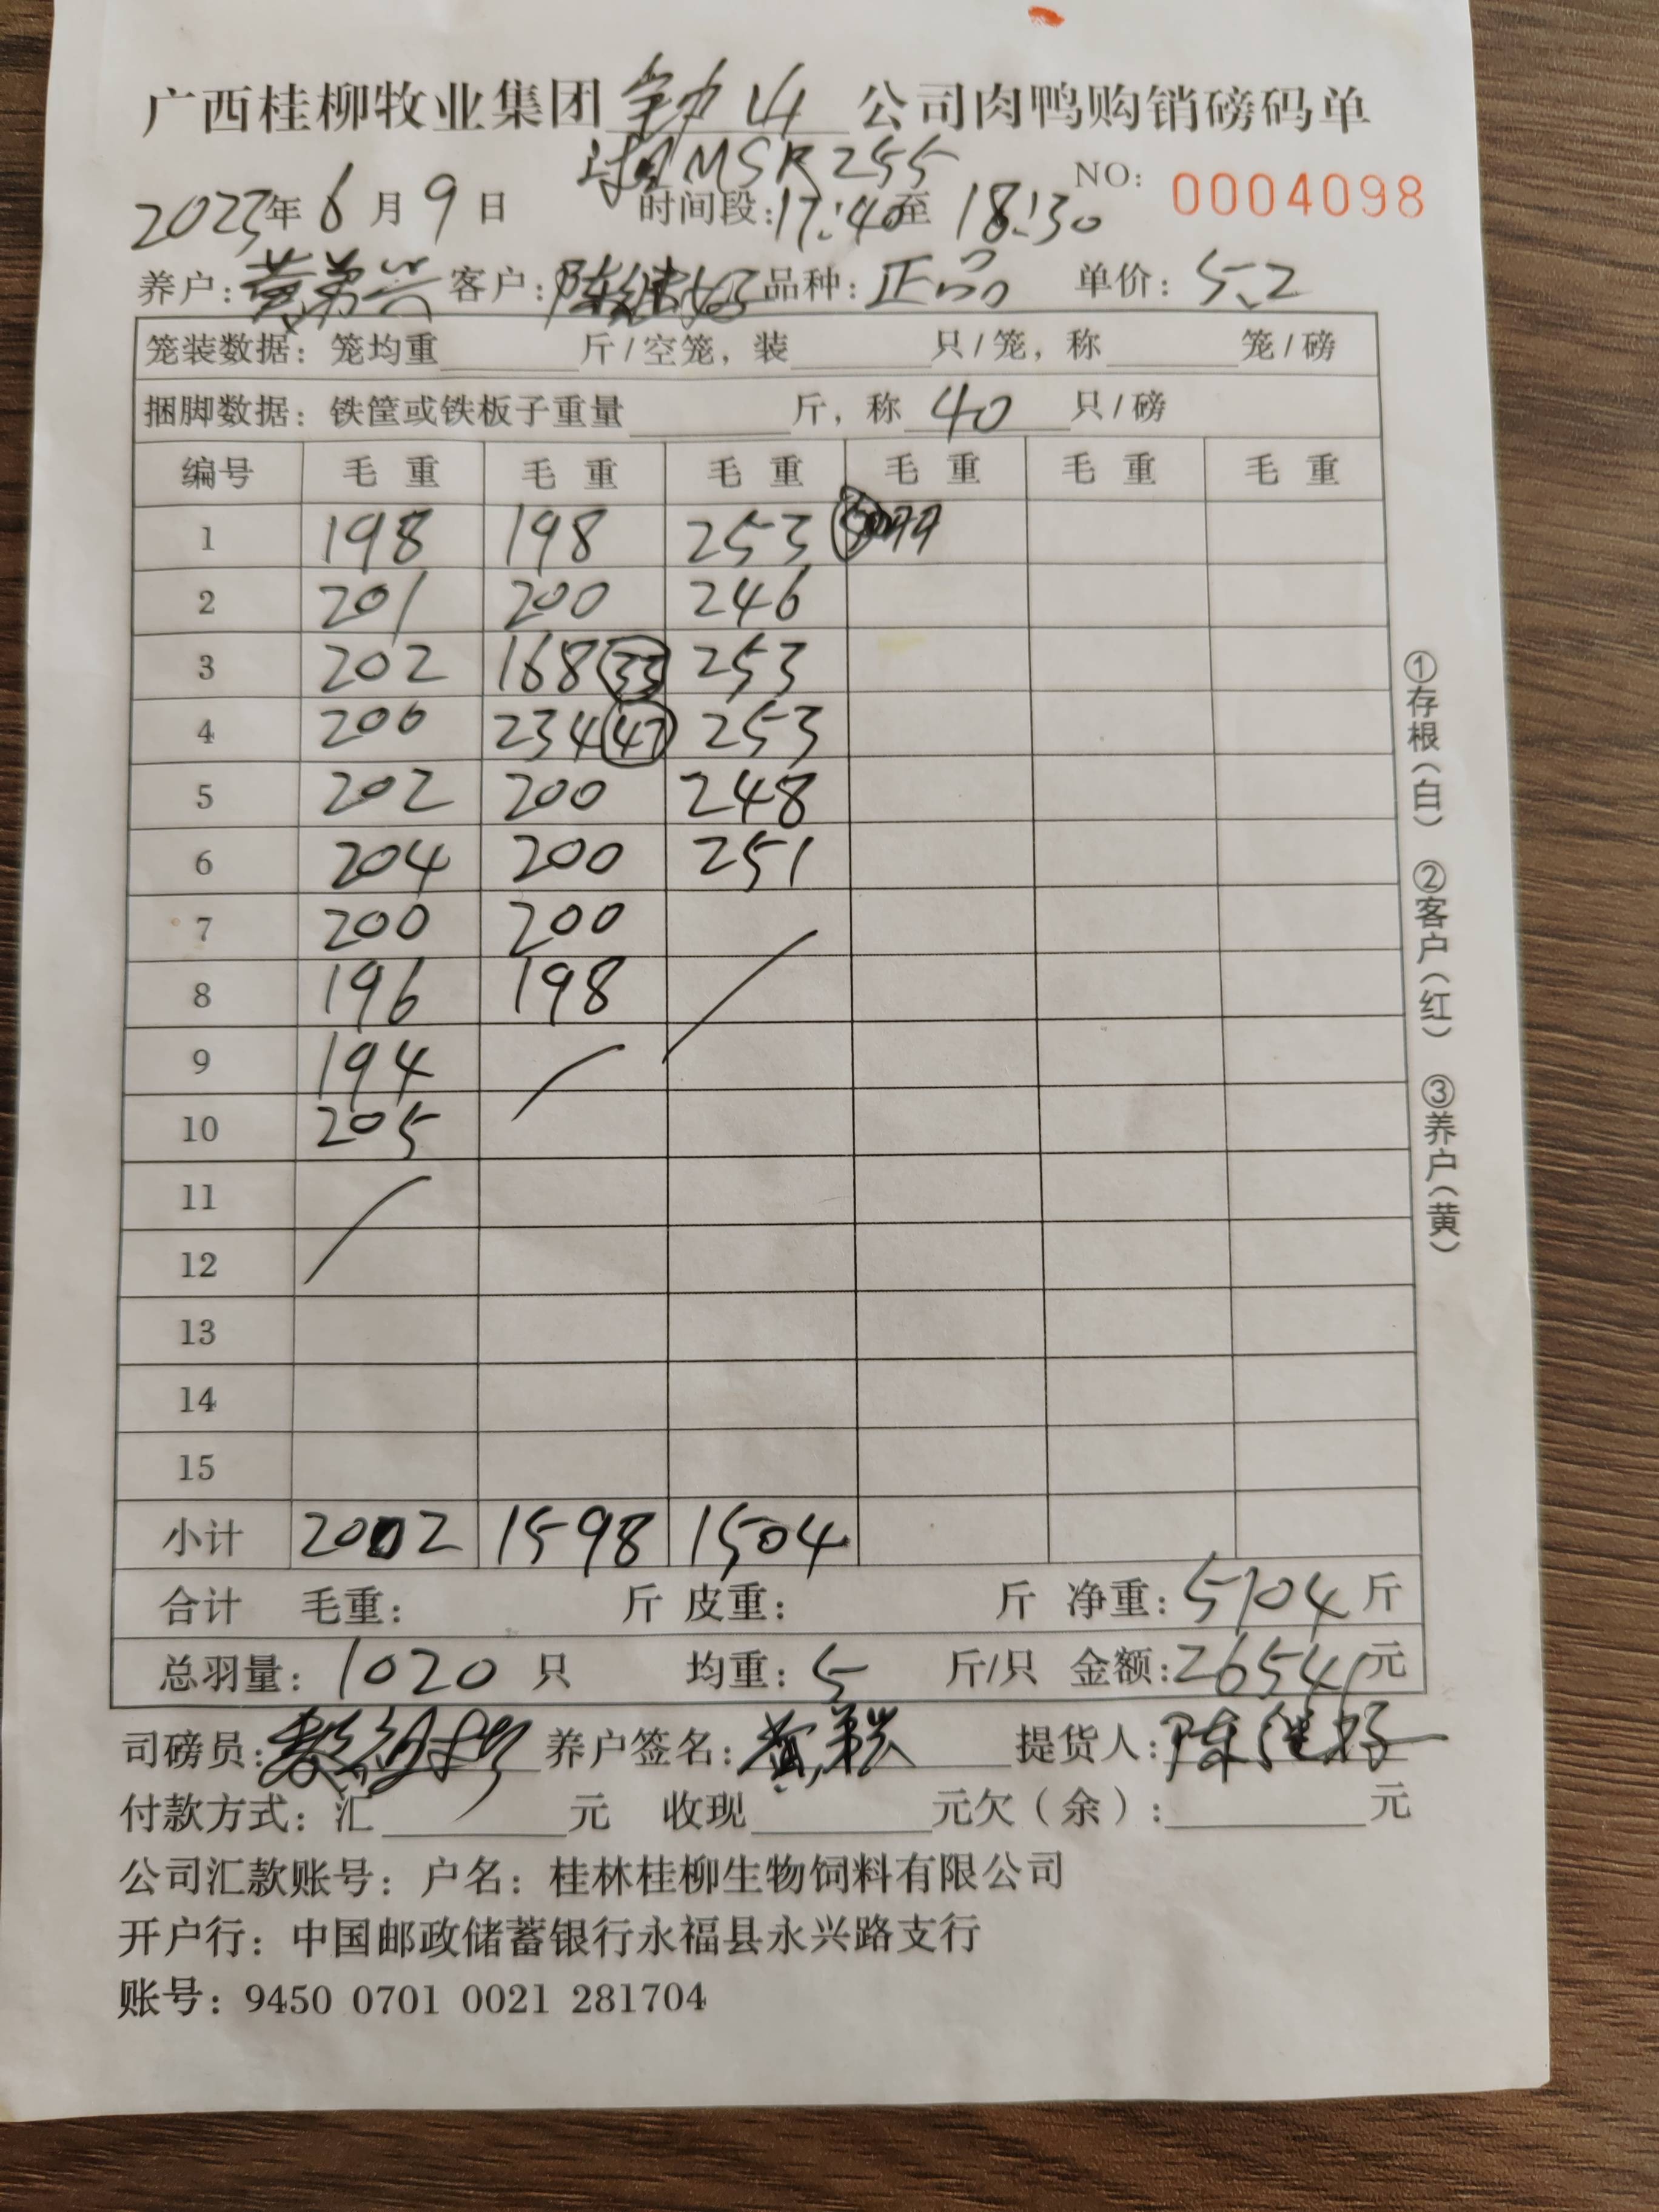 广西桂柳牧业集团 钟山 公司肉鸭购销磅码单
MSR255
NO: 0004098
2023年6月9日 时间段:17:40至18:30
养户: 客户:陈继好 品种:正品 单价:5.2
笼装数据:笼均重 斤/空笼,装 只/笼,称 笼/磅
捆脚数据:铁筐或铁板子重量 斤,称 40 只/磅
编号 毛重 毛重 毛重 毛重 毛重 毛重
1 198 198 253
2 201 200 246
3 202 168 33 253
4 200 234 47 253
5 202 200 248
6 204 200 251
7 200 200
8 196 198
9 194
10 205
11
12
13
14
15
小计 2002 1598 1504
合计 毛重: 斤 皮重: 斤 净重:5104斤
总羽量:1020只 均重:5 斤/只 金额:26541元
司磅员: 养户签名: 提货人:陈继好
付款方式:汇 元 收现 元欠(余): 元
公司汇款账号:户名:桂林桂柳生物饲料有限公司
开户行:中国邮政储蓄银行永福县永兴路支行
账号:9450 0701 0021 281704
①存根(白) ②客户(红) ③养户(黄)